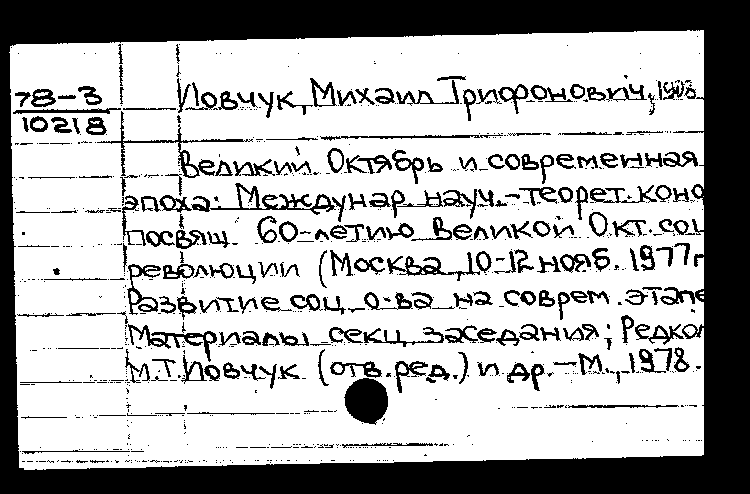 78-3
10218
Иовчук, Михаил Трифонович, 1908
Великий Октябрь и современная
эпоха: Междунар. науч.-теорет. конф
посвящ. 60-летию Великой Окт. соц
революции (Москва, 10-12 нояб. 1977г
Развитие соц. о-ва на соврем. этапе
Материалы секц. заседания; Редкол
М.Т. Иовчук (отв. ред.) и др. -М., 1978.